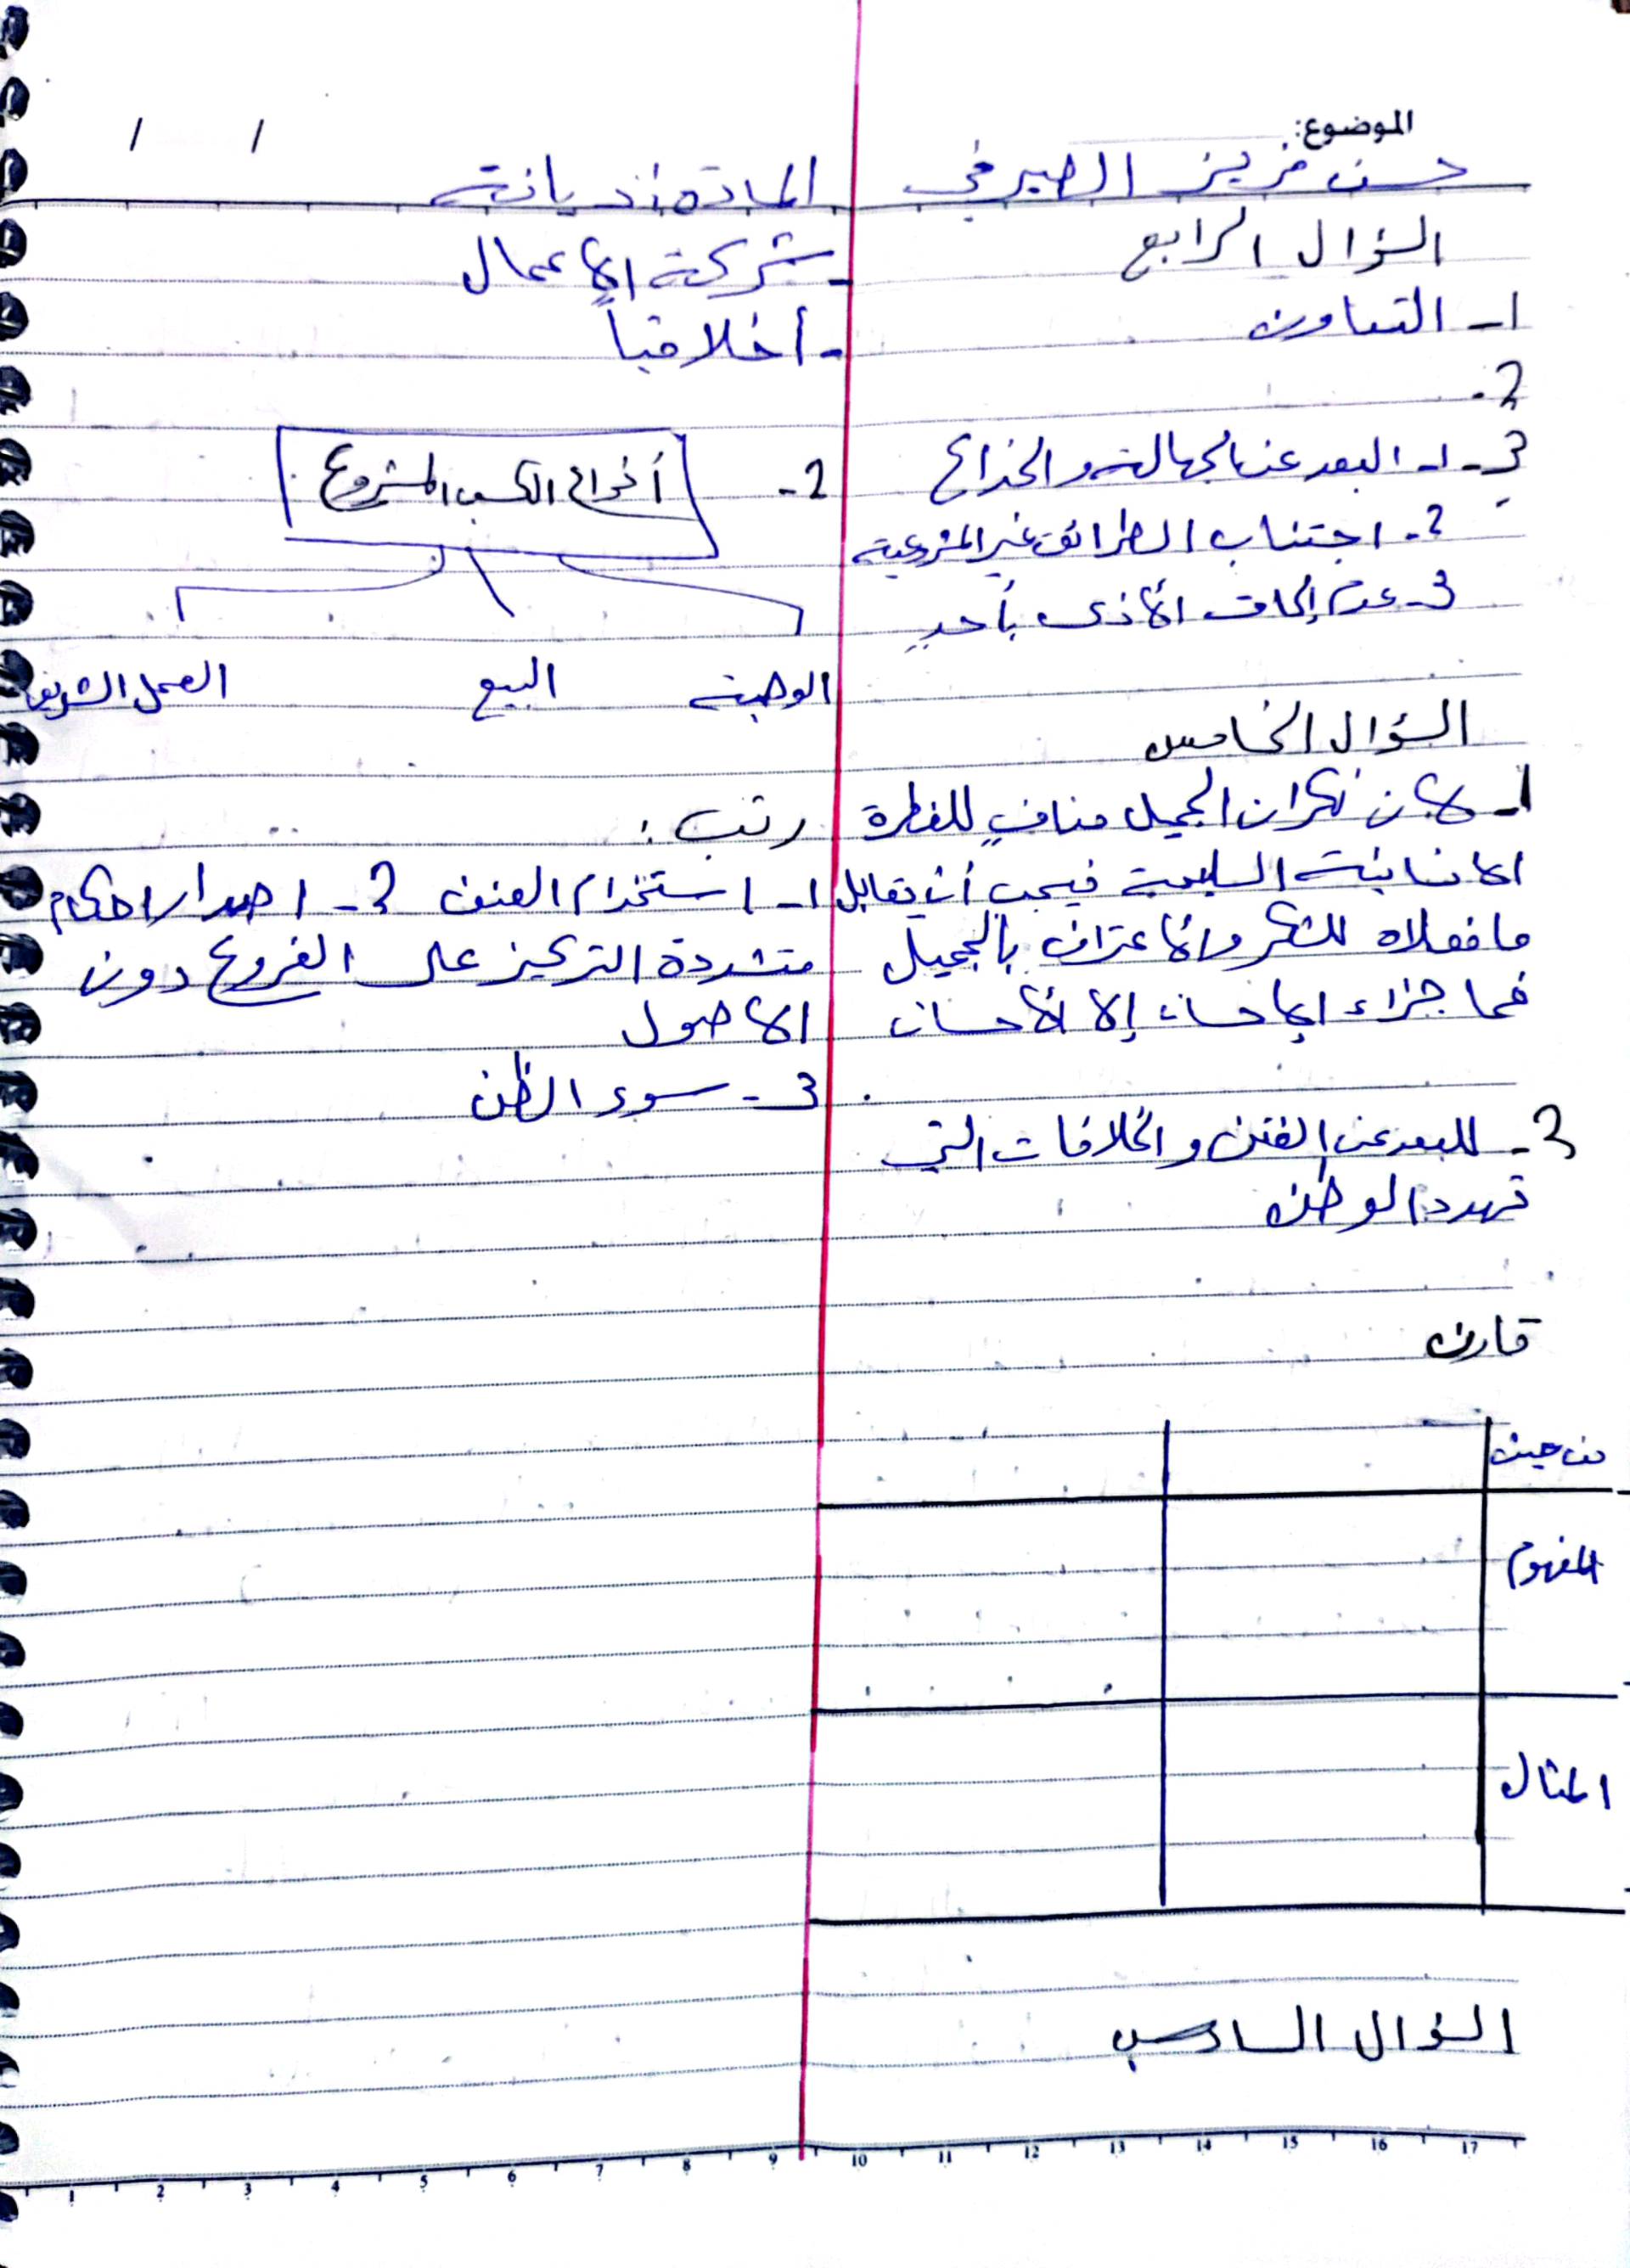 الموضوع:
حسن فريز الصيرفي
المادة: ديانة
السؤال الرابع
1- التعاون
2-
3- 1- البعد عن الجهالة والخداع
2- اجتناب الطرائق غير المشروعية
3- عدم إلحاق الأذى بأحدٍ
السؤال الخامس
1- لان نكران الجميل منافٍ للفطرة
الانسانية السليمة فيجب أن تقابل
ما فعلاه للشكر والاعتراف بالجميل
فما جزاء الإحسان إلا الأحسان
3- للبعد عن الفتن والخلافات التي
تهدد الوطن
قارن
من حيث
المفهوم
المثال
السؤال السادس
- شركة الأعمال
- أخلاقياً
2- أنواع الكسب المشروع
الوصية البيع العمل الشريف
رتب:
1- استخدام العنف 2- اصدار احكام
متشددة التركيز على الفروع دون
الاصول
3- سوء الظن
1 2 3 4 5 6 7 8 9 10 11 12 13 14 15 16 17